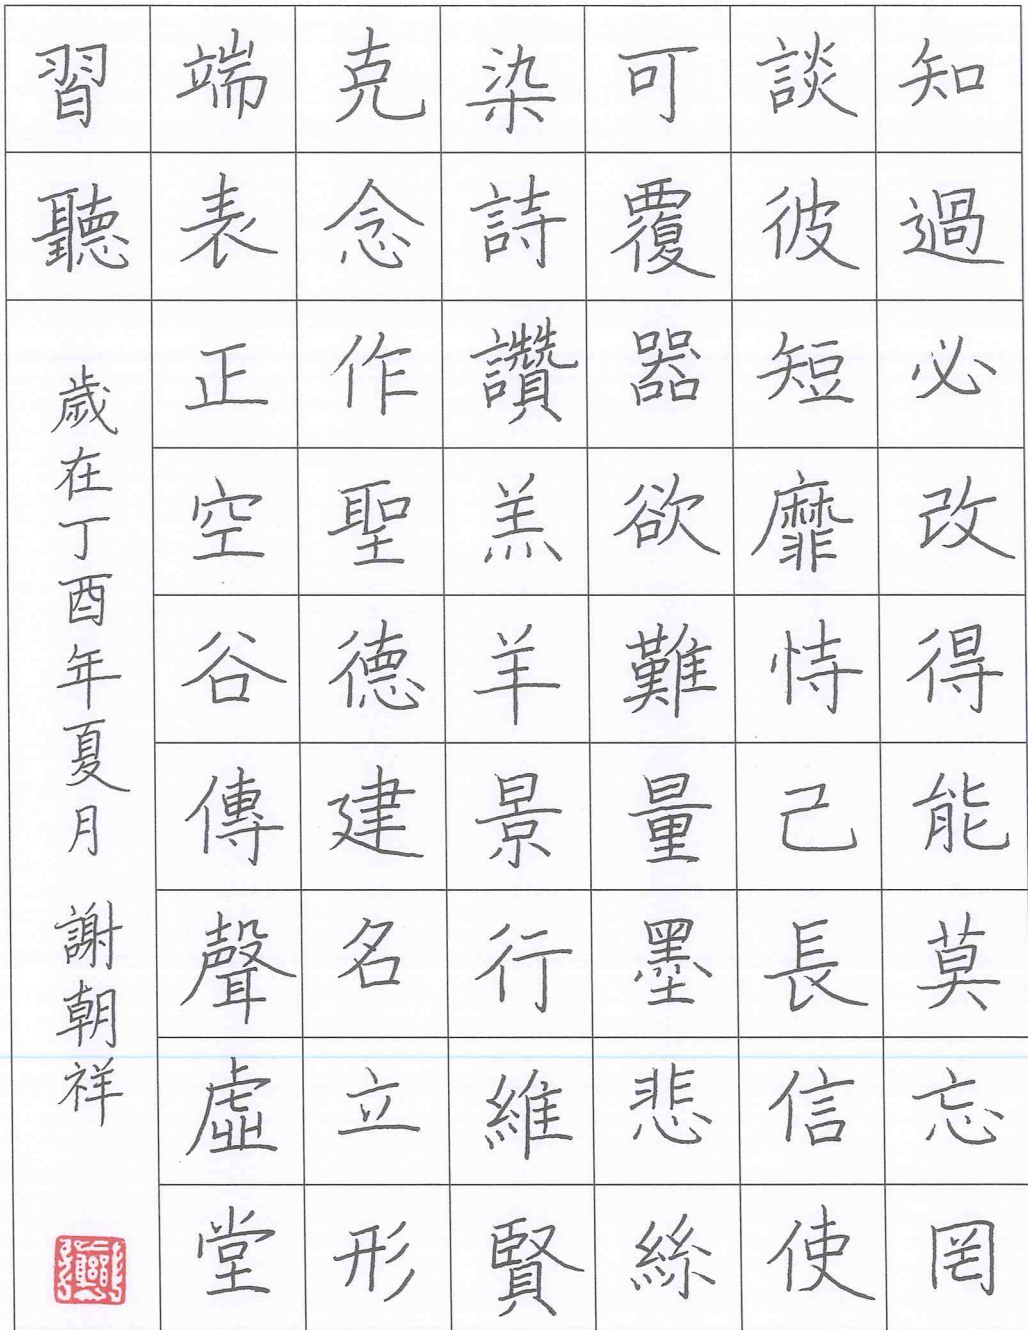 知過必改得能莫忘罔
談彼短靡恃己長信使
可覆器欲難量墨悲絲
染詩讚羔羊景行維賢
克念作聖德建名立形
端表正空谷傳聲虛堂
習聽
歲在丁酉年夏月 謝朝祥